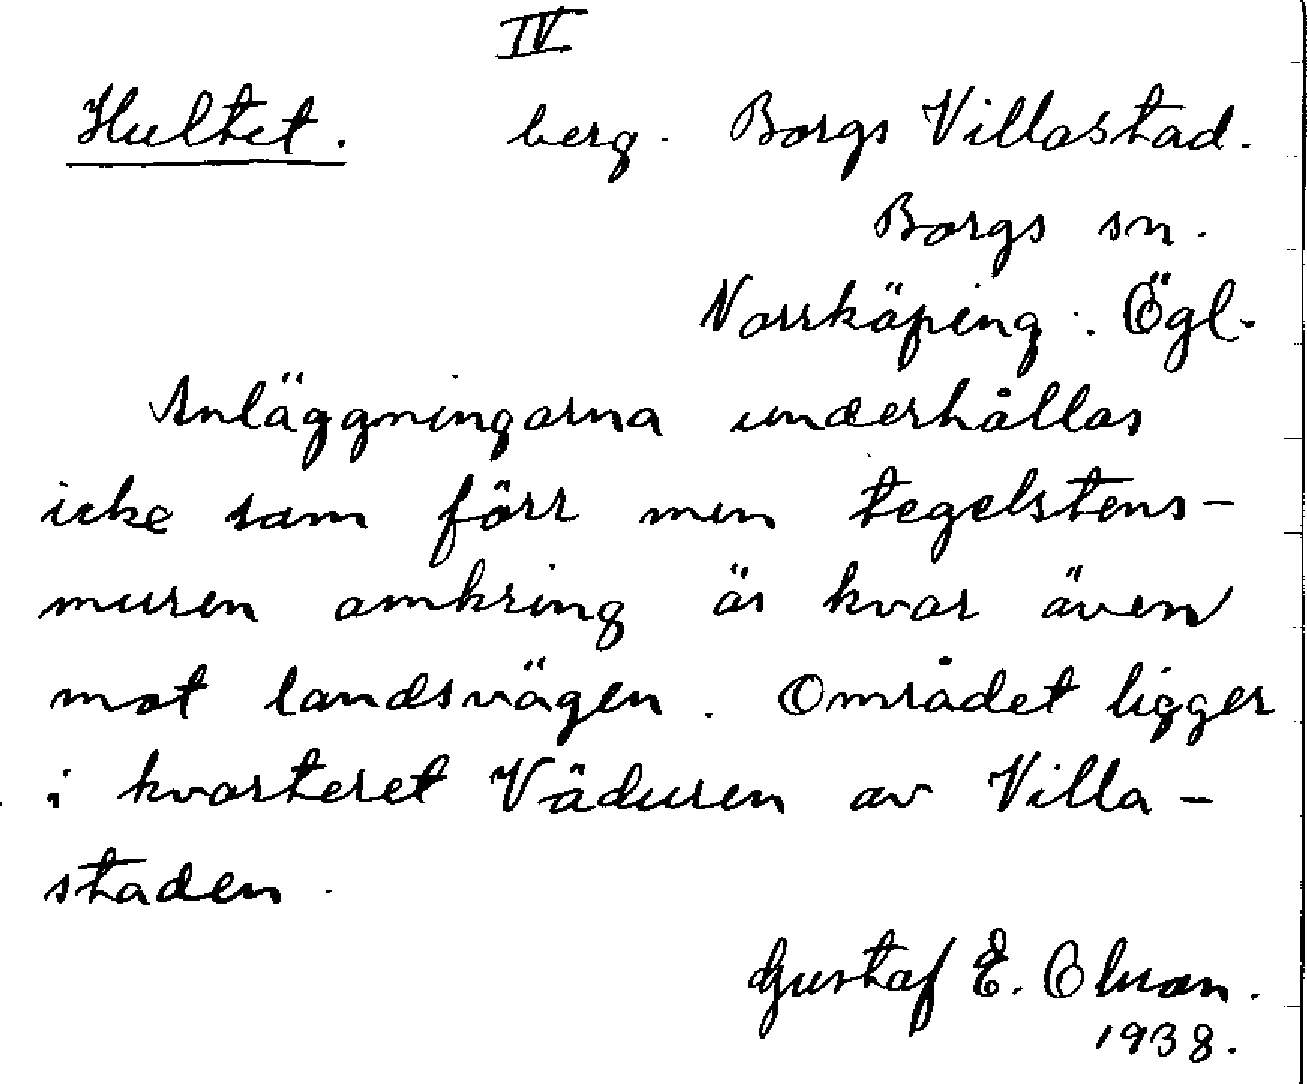 IV
Hultet. berg. Borgs Villastad.
Borgs sn.
Norrköping. Ögl.
Anläggningarna underhållas
icke som förr men tegelstens-
muren omkring är kvar även
mot landsvägen. Området ligger
i kvarteret Väduren av Villa-
staden.
Gustaf E. Olsson.
1938.